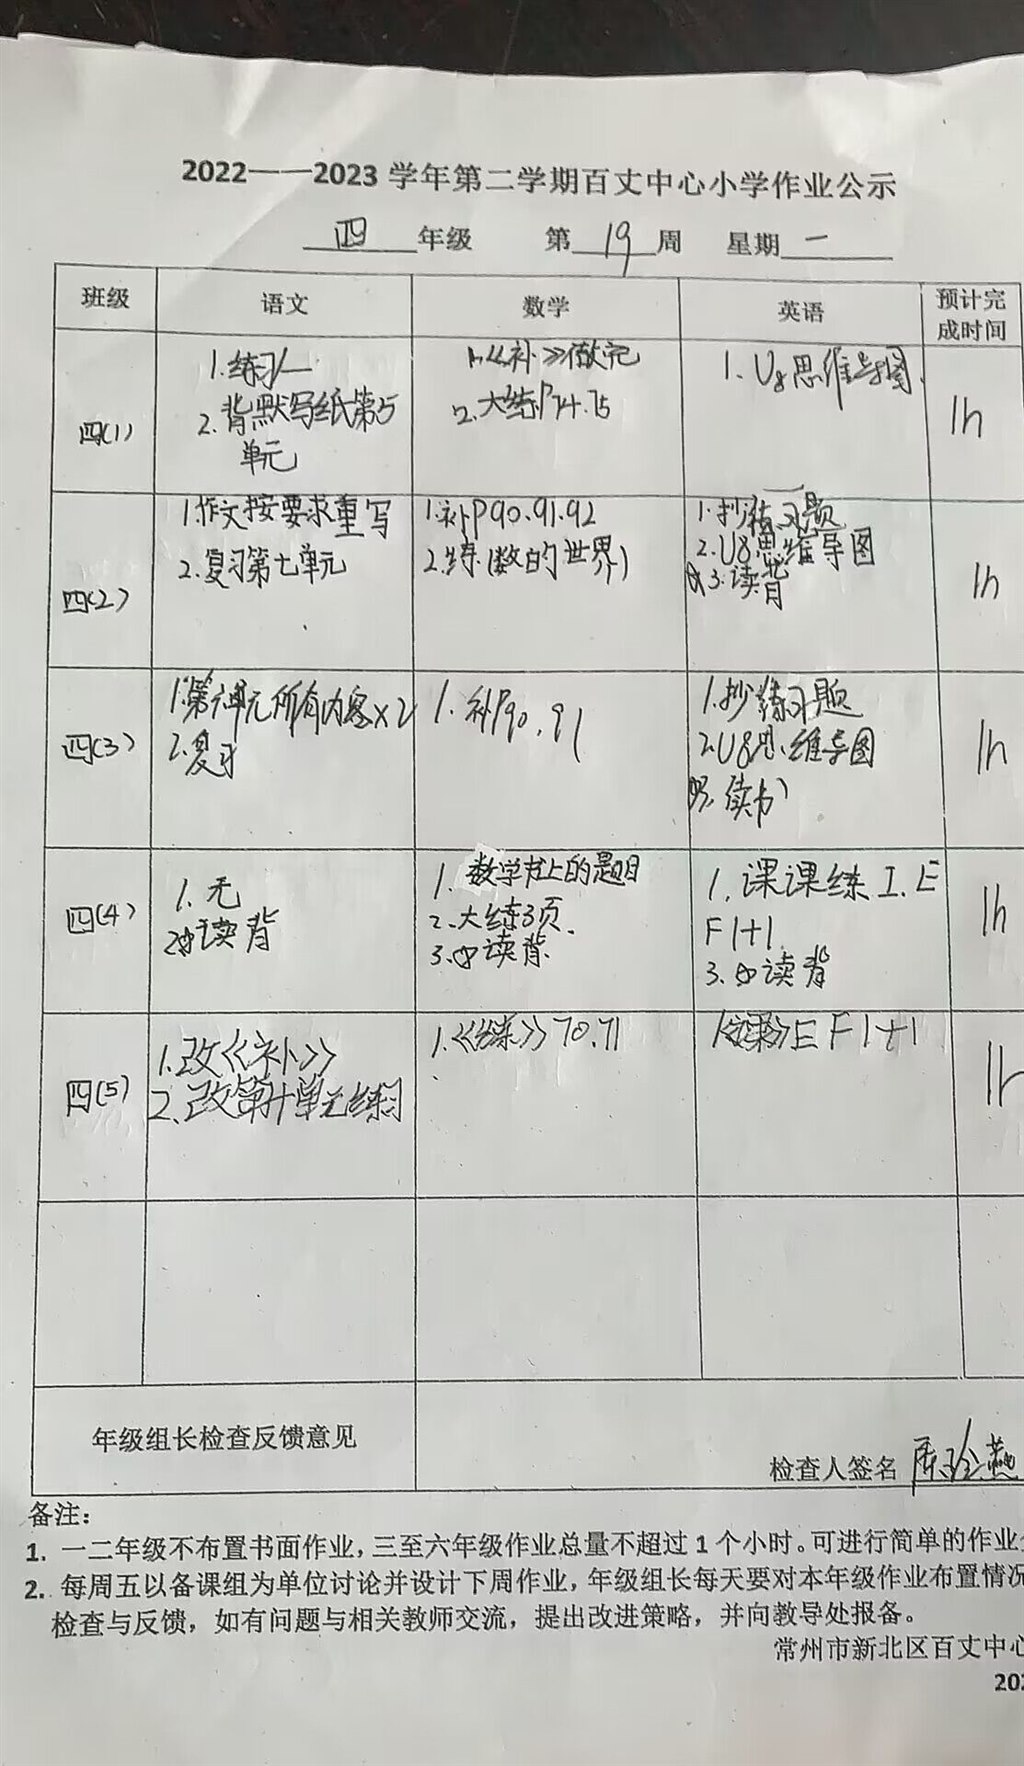 2022——2023学年第二学期百丈中心小学作业公示
四 年级 第 19 周 星期 一
班级 语文 数学 英语 预计完成时间
四(1)
1.练习一
2.背默写纸第5
单元
1.《补》做完
2.大练P74.75
1.U8思维导图.
1h
四(2)
1.作文按要求重写
2.复习第七单元
1.补P90.91.92
2.练(数的世界)
1.抄练习题
2.U8思维导图
3.读背
1h
四(3)
1.第 单元所有内容×2
2.复习
1.补P90.91
1.抄练习题
2.U8思维导图
3.读书
1h
四(4)
1.无
2.读背
1.数学书上的题目
2.大练3页.
3.读背.
1.课课练I.E
F1+1
3.读背
1h
四(5)
1.改《补》
2.改第 单元练习
1.《练》70.71
E F1+1
1h
年级组长检查反馈意见
检查人签名
备注:
1. 一二年级不布置书面作业,三至六年级作业总量不超过1个小时。可进行简单的作业
2. 每周五以备课组为单位讨论并设计下周作业,年级组长每天要对本年级作业布置情况
检查与反馈,如有问题与相关教师交流,提出改进策略,并向教导处报备。
常州市新北区百丈中心
202